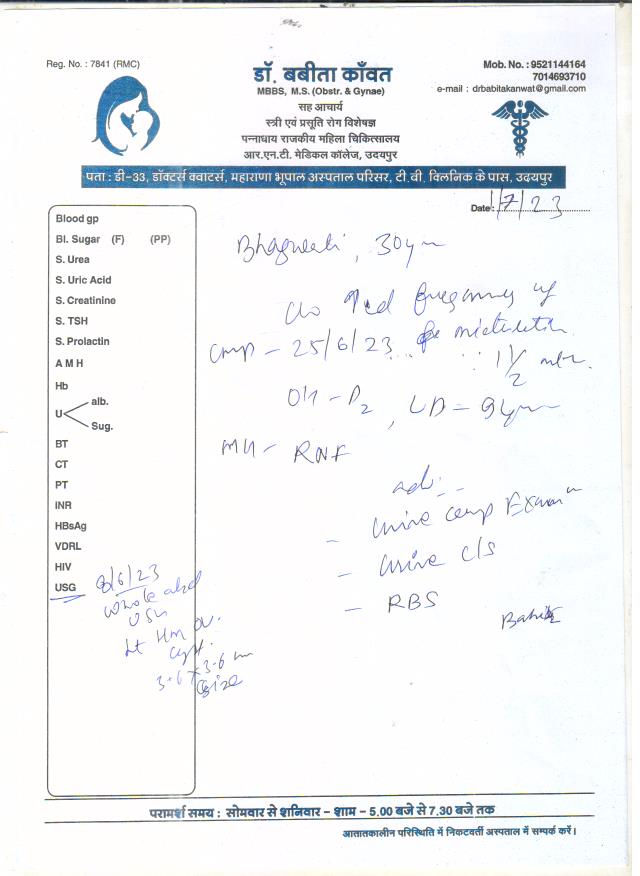 Reg. No. : 7841 (RMC)
डॉ. बबीता काँवत
MBBS, M.S. (Obstr. & Gynae)
सह आचार्य
स्त्री एवं प्रसूति रोग विशेषज्ञ
पन्नाधाय राजकीय महिला चिकित्सालय
आर.एन.टी. मेडिकल कॉलेज, उदयपुर
Mob. No. : 9521144164
7014693710
e-mail : drbabitakanwat@gmail.com
पता : डी-33, डॉक्टर्स क्वाटर्स, महाराणा भूपाल अस्पताल परिसर, टी.बी. क्लिनिक के पास, उदयपुर
Date: 1/7/23
Blood gp
Bl. Sugar (F) (PP)
S. Urea
S. Uric Acid
S. Creatinine
S. TSH
S. Prolactin
A M H
Hb
U alb.
Sug.
BT
CT
PT
INR
HBsAg
VDRL
HIV
USG
8/6/23
Whole abd
USG
Lt Hm ov.
cyst.
3.6 x 3.6
size
, 30yr
c/o frequency of
micturition
LMP - 25/6/23 1 1/2 mth
O/H - P2, LD - 9yr
M/H - RNF
adv. -
- Urine comp Examn
- Urine C/S
- RBS
परामर्श समय : सोमवार से शनिवार - शाम - 5.00 बजे से 7.30 बजे तक
आतातकालीन परिस्थिति में निकटवर्ती अस्पताल में सम्पर्क करें।